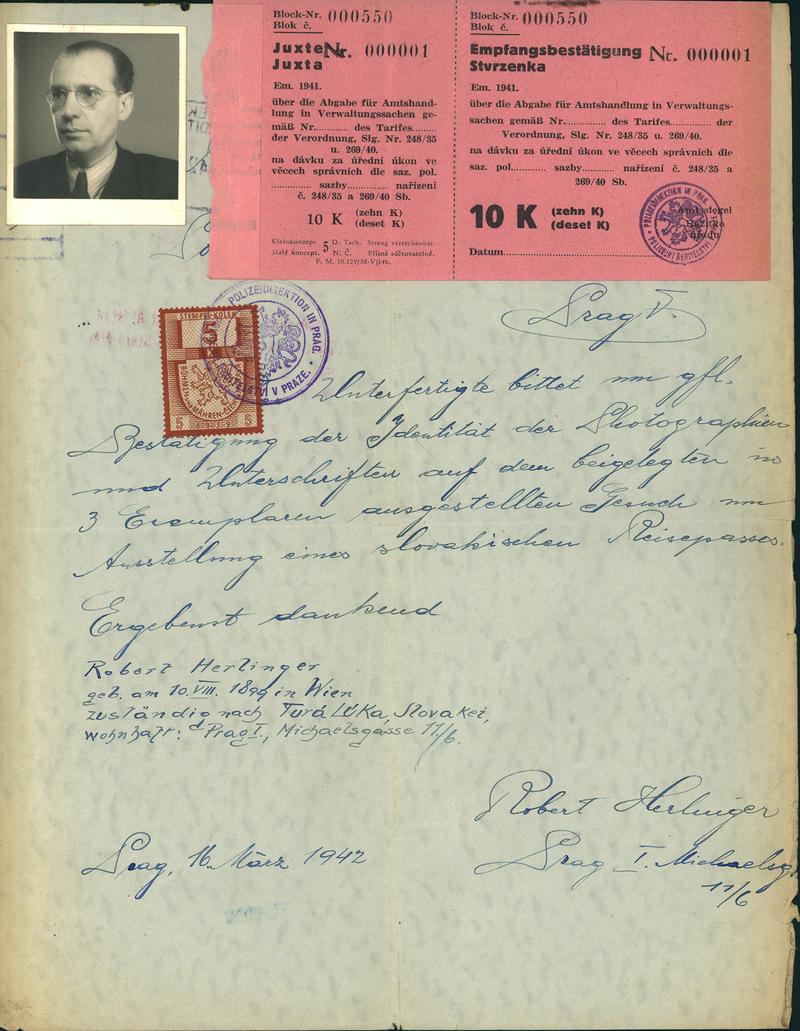 Block-Nr. 000550
Blok č.
Juxte Nr. 000001
Juxta
Em. 1941.
über die Abgabe für Amtshand-
lung in Verwaltungssachen ge-
mäß Nr............ des Tarifes........
der Verordnung, Slg. Nr. 248/35
u. 269/40.
na dávku za úřední úkon ve
věcech správních dle saz. pol.
.............. sazby ............ nařízení
č. 248/35 a 269/40 Sb.
10 K (zehn K)
(deset K)
Kleinkonzept 5 D. Tsch. Streng verrechenbar.
Malý koncept. 5 N. Č. Přísně zúčtovatelné.
Block-Nr. 000550
Blok č.
Empfangsbestätigung Nr. 000001
Stvrzenka
Em. 1941.
über die Abgabe für Amtshandlung in Verwaltungs-
sachen gemäß Nr............ des Tarifes............ der
Verordnung, Slg. Nr. 248/35 u. 269/40.
na dávku za úřední úkon ve věcech správních dle
saz. pol............... sazby............ nařízení č. 248/35 a
269/40 Sb.
10 K (zehn K)
(deset K)
Amtssiegel
Razítko
úřadu
Datum
POLIZEIDIREKTION IN PRAG
POLICEJNÍ ŘEDITELSTVÍ
Prag V.
STEMPEL-KOLEK
5
BÖHMEN und MÄHREN
5 1939 5
POLIZEIDIREKTION IN PRAG.
V PRAZE.
Unterfertigte bittet um gfl.
Bestätigung der Identität der Photographien
und Unterschriften auf dem beigelegten in
3 Exemplaren ausgestellten Gesuch um
Ausstellung eines slovakischen Reisepasses.
Ergebenst dankend
Robert Herlinger
geb. am 10. VIII. 1899 in Wien
zuständig nach Turá Lúka, Slovakei,
wohnhaft: Prag I., Michaelsgasse 11/6.
Robert Herlinger
Prag, 16. März 1942
Prag I. Michaelsg.
11/6